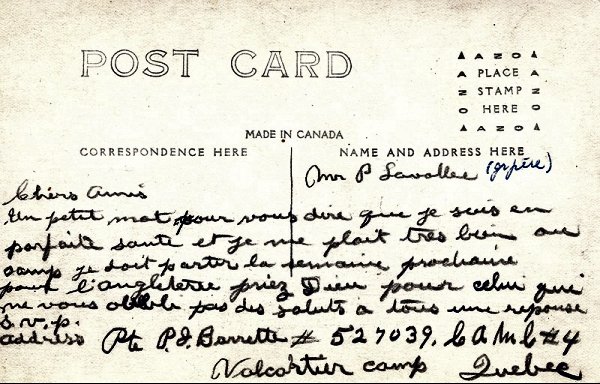 POST CARD
AZO
PLACE
STAMP
HERE
AZO
MADE IN CANADA
CORRESPONDENCE HERE
NAME AND ADDRESS HERE
Mr P Lavallee (gr père)
Chers Amis
Un petit mot pour vous dire que je suis en
parfaite sante et je me plait tres bien au
camp je doit partir la semaine prochaine
pour l'angleterre priez Dieu pour celui qui
ne vous oblole pas des saluts a tous une reponse
s.v.p.
address Pte P.J. Barrette # 527039. C A M C #4
Valcartier camp Quebec